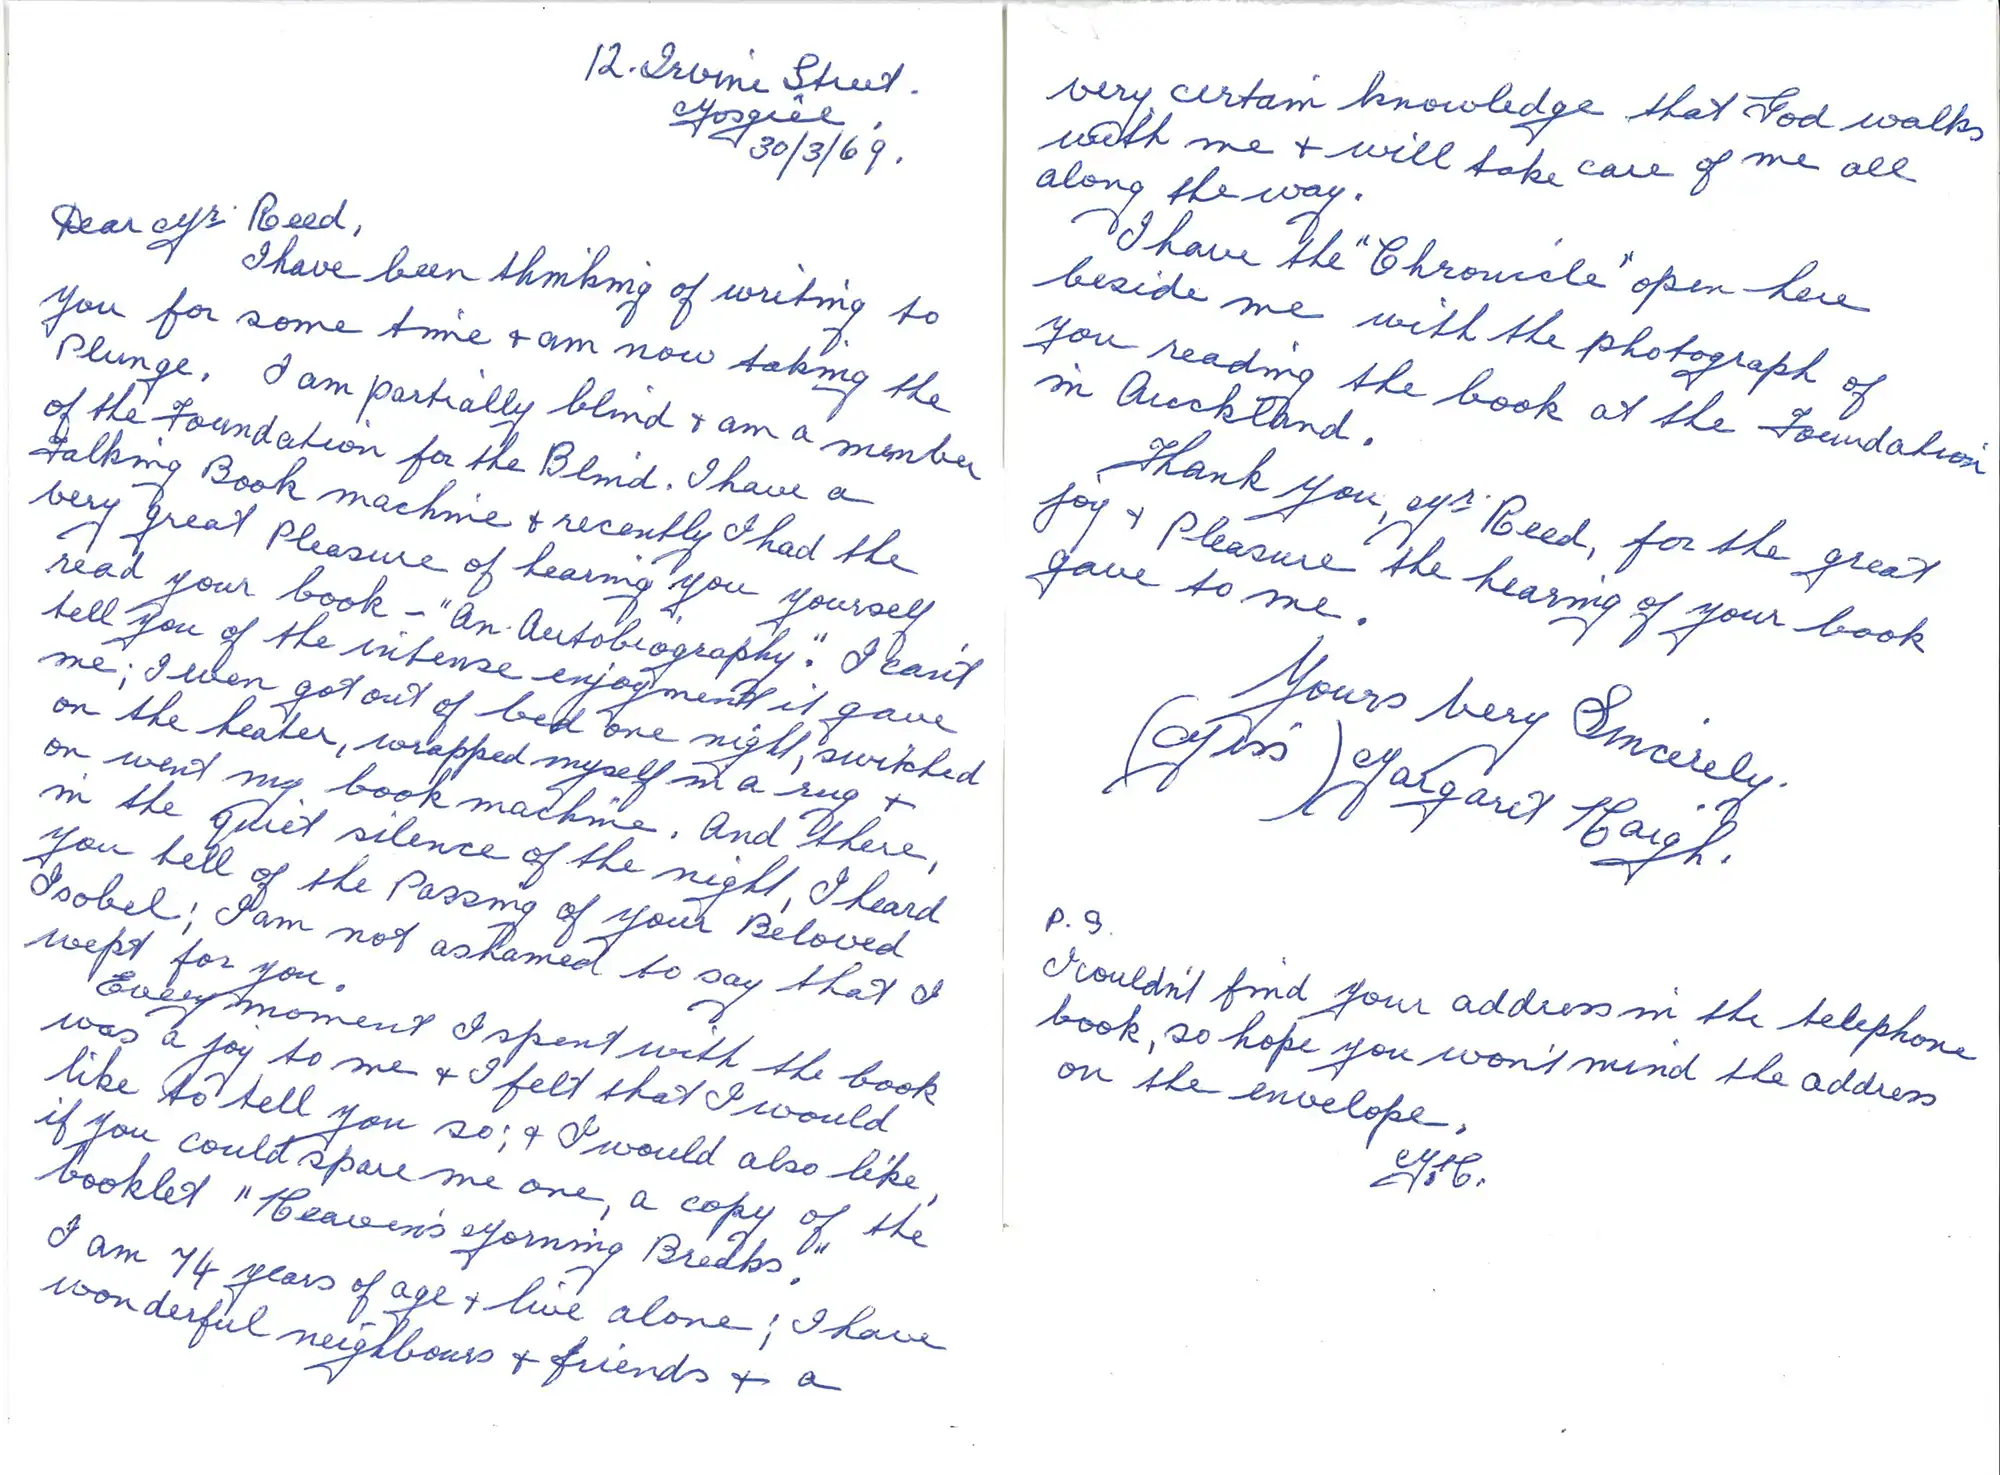 12. Irvine Street.
Mosgiel,
30/3/69.
Dear Mr. Reed,
I have been thinking of writing to
you for some time + am now taking the
Plunge. I am partially blind + am a member
of the Foundation for the Blind. I have a
Talking Book machine + recently I had the
very great Pleasure of hearing you yourself
read your book - "An Autobiography". I can't
tell you of the intense enjoyment it gave
me; I even got out of bed one night, switched
on the heater, wrapped myself in a rug +
on went my book machine. And there,
in the quiet silence of the night, I heard
you tell of the Passing of your Beloved
Isobel; I am not ashamed to say that I
wept for you.
Every moment I spent with the book
was a joy to me + I felt that I would
like to tell you so; + I would also like,
if you could spare me one, a copy of the
booklet "Heaven's Morning Breaks."
I am 74 years of age + live alone; I have
wonderful neighbours + friends + a
very certain knowledge that God walks
with me + will take care of me all
along the way.
I have the "Chronicle" open here
beside me with the photograph of
you reading the book at the Foundation
in Auckland.
Thank you, Mr. Reed, for the great
joy + Pleasure the hearing of your book
gave to me.
Yours Very Sincerely.
(Miss) Margaret Haigh.
P.S.
I couldn't find your address in the telephone
book, so hope you won't mind the address
on the envelope.
M.H.